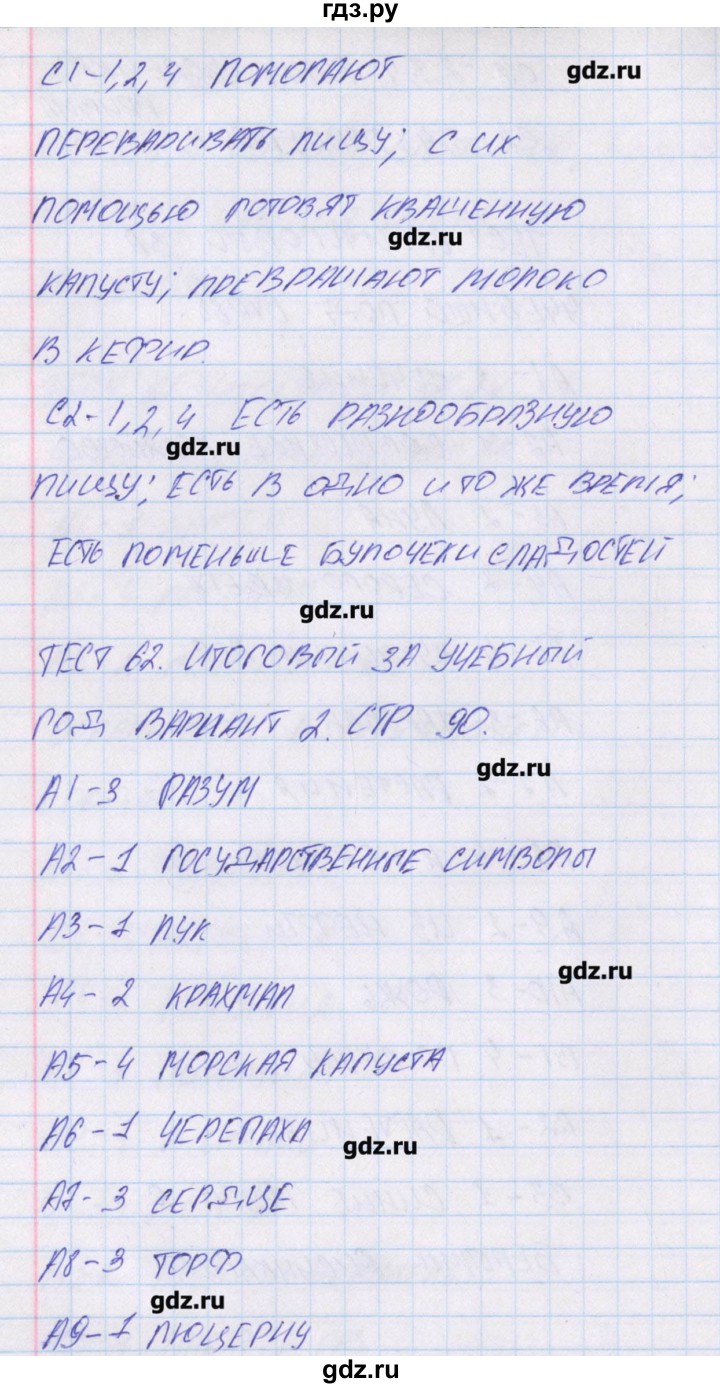 гдз.ру
С1-1,2,4 ПОМОГАЮТ
gdz.ru
ПЕРЕВАРИВАТЬ ПИЩУ; С ИХ
ПОМОЩЬЮ ГОТОВЯТ КВАШЕННУЮ
gdz.ru
КАПУСТУ; ПРЕВРАЩАЮТ МОЛОКО
В КЕФИР.
С2-1,2,4 ЕСТЬ РАЗНООБРАЗНУЮ
gdz.ru
ПИЩУ; ЕСТЬ В ОДНО И ТО ЖЕ ВРЕМЯ;
ЕСТЬ ПОМЕНЬШЕ БУЛОЧЕК И СЛАДОСТЕЙ
gdz.ru
ТЕСТ 62. ИТОГОВЫЙ ЗА УЧЕБНЫЙ
ГОД ВАРИАНТ 2. СТР 90.
gdz.ru
А1-3 РАЗУМ
А2-1 ГОСУДАРСТВЕННЫЕ СИМВОЛЫ
А3-1 ЛУК
gdz.ru
А4-2 КРАХМАЛ
А5-4 МОРСКАЯ КАПУСТА
А6-1 ЧЕРЕПАХА
gdz.ru
А7-3 СЕРДЦЕ
А8-3 ТОРФ
gdz.ru
А9-1 ЛЮЦЕРНУ
gdz.ru